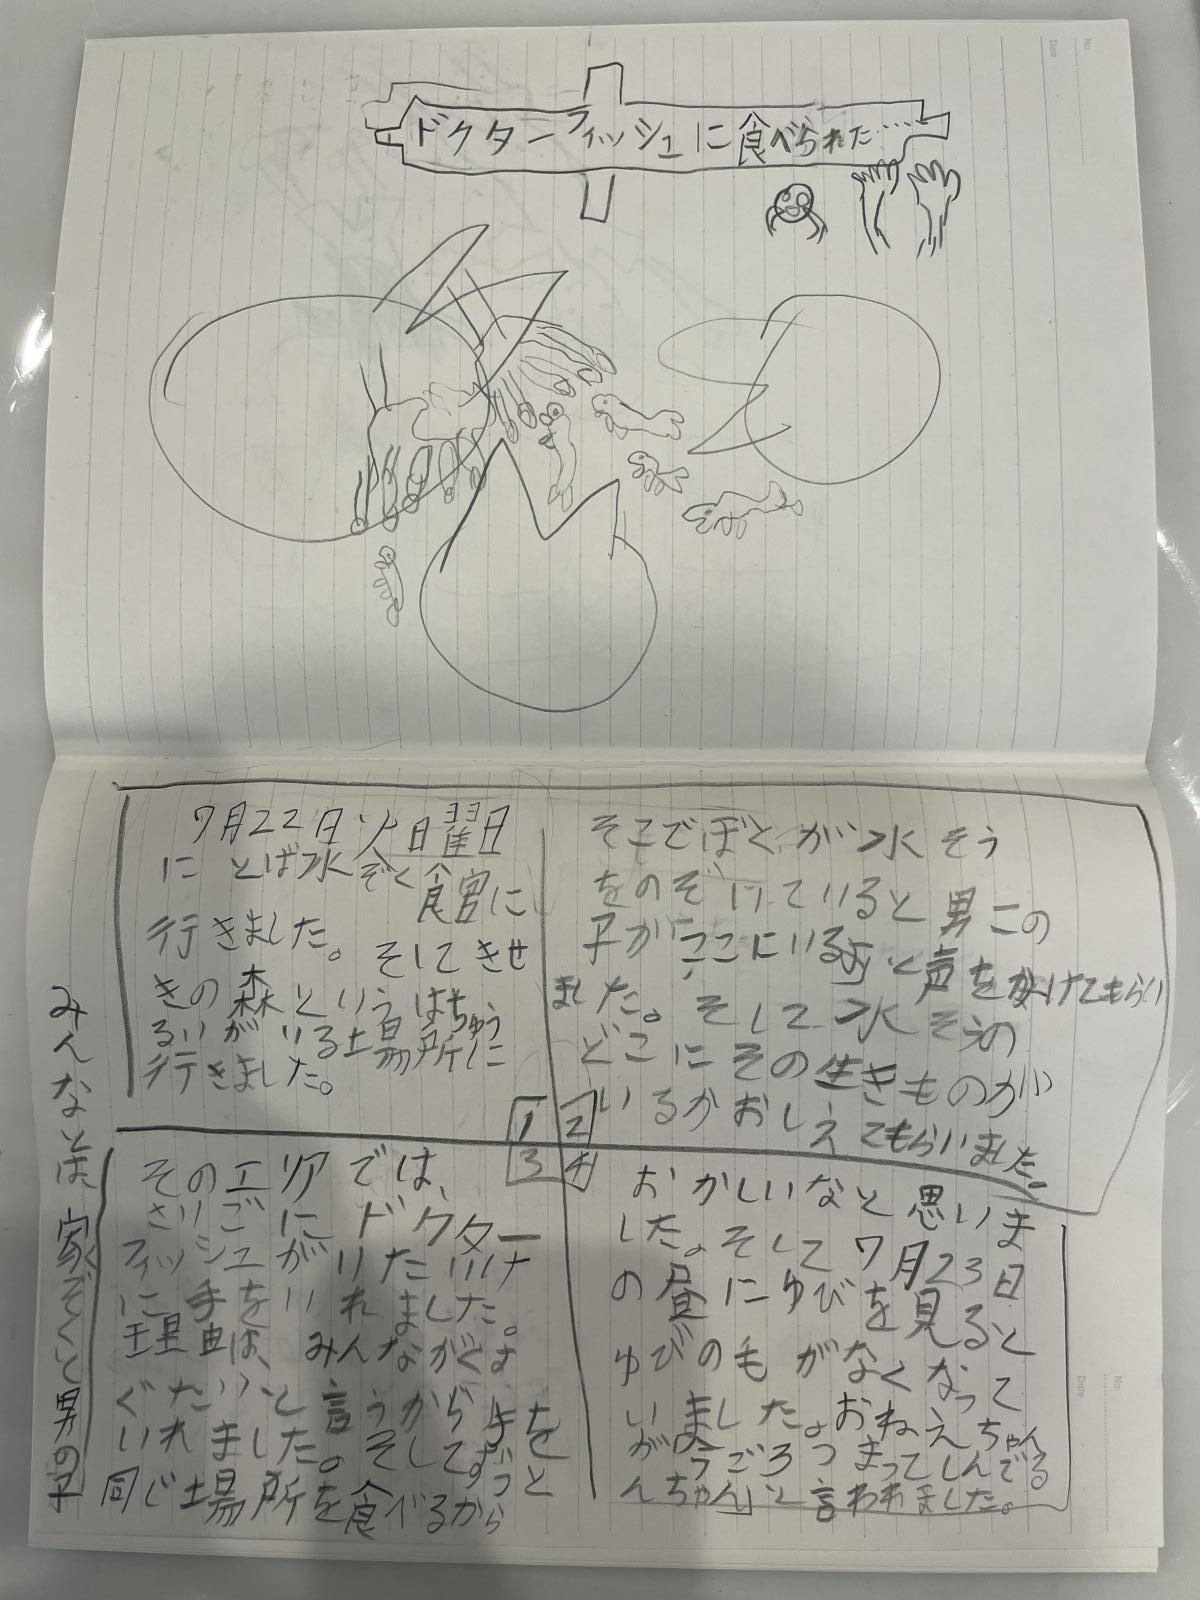 ドクターフィッシュに食べられた……
7月22日火曜日
にとば水ぞく食宮に
行きました。そしてきせ
きの森というはちゅう
るいがいる土場所に
行きました。
1
そこでぼとが水そう
をのぞけていると男この
子がここにいるよと声をかけてもらい
ました。そして水そうの
どこにその生きものが
いるかおしえてもらいました。
2
そのエリアでは、
さいごにドクター
フィッシュがいたけ
に手をいれました。
理由は、みんながぐす
ぐたいと言うから手を
いれました。そしてずっと
同じ土場所を食べるから
3
おかしいなと思いま
した。そして7月23日
の昼にゆびを見ると
ゆびの毛がなくなって
いました。おねえちゃん
が、うごろつまってしんでる
んちゃん、と言われました。
4
みんなとは、家ぞくと男の子
No.
Date
No.
Date